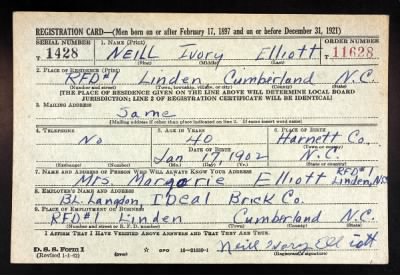 REGISTRATION CARD—(Men born on or after February 17, 1897 and on or before December 31, 1921)
SERIAL NUMBER 1. NAME (Print) ORDER NUMBER
T 1428 NEILL Ivory Elliott T 11628
(First) (Middle) (Last)
2. PLACE OF RESIDENCE (Print)
RFD#1 Linden Cumberland N.C.
(Number and street) (Town, township, village, or city) (County) (State)
(THE PLACE OF RESIDENCE GIVEN ON THE LINE ABOVE WILL DETERMINE LOCAL BOARD
JURISDICTION; LINE 2 OF REGISTRATION CERTIFICATE WILL BE IDENTICAL)
3. MAILING ADDRESS
Same
(Mailing address if other than place indicated on line 2. If same insert word same)
4. TELEPHONE 5. AGE IN YEARS 6. PLACE OF BIRTH
No 40 Harnett Co.
DATE OF BIRTH (Town or county)
Jan 1902 N.C.
(Exchange) (Number) (Mo.) (Day) (Yr.) (State or country)
7. NAME AND ADDRESS OF PERSON WHO WILL ALWAYS KNOW YOUR ADDRESS RFD#1
Mrs. Margarie Elliott Linden, N.C.
8. EMPLOYER'S NAME AND ADDRESS
B.L. Langdon, Ideal Brick Co.
9. PLACE OF EMPLOYMENT OR BUSINESS
RFD#1 Linden Cumberland N.C.
(Number and street or R. F. D. number) (Town) (County) (State)
I AFFIRM THAT I HAVE VERIFIED ABOVE ANSWERS AND THAT THEY ARE TRUE.
D. S. S. Form 1
(Revised 1-1-42) (over) GPO 16—21630-1 Neill Ivory Elliott
(Registrant's signature)